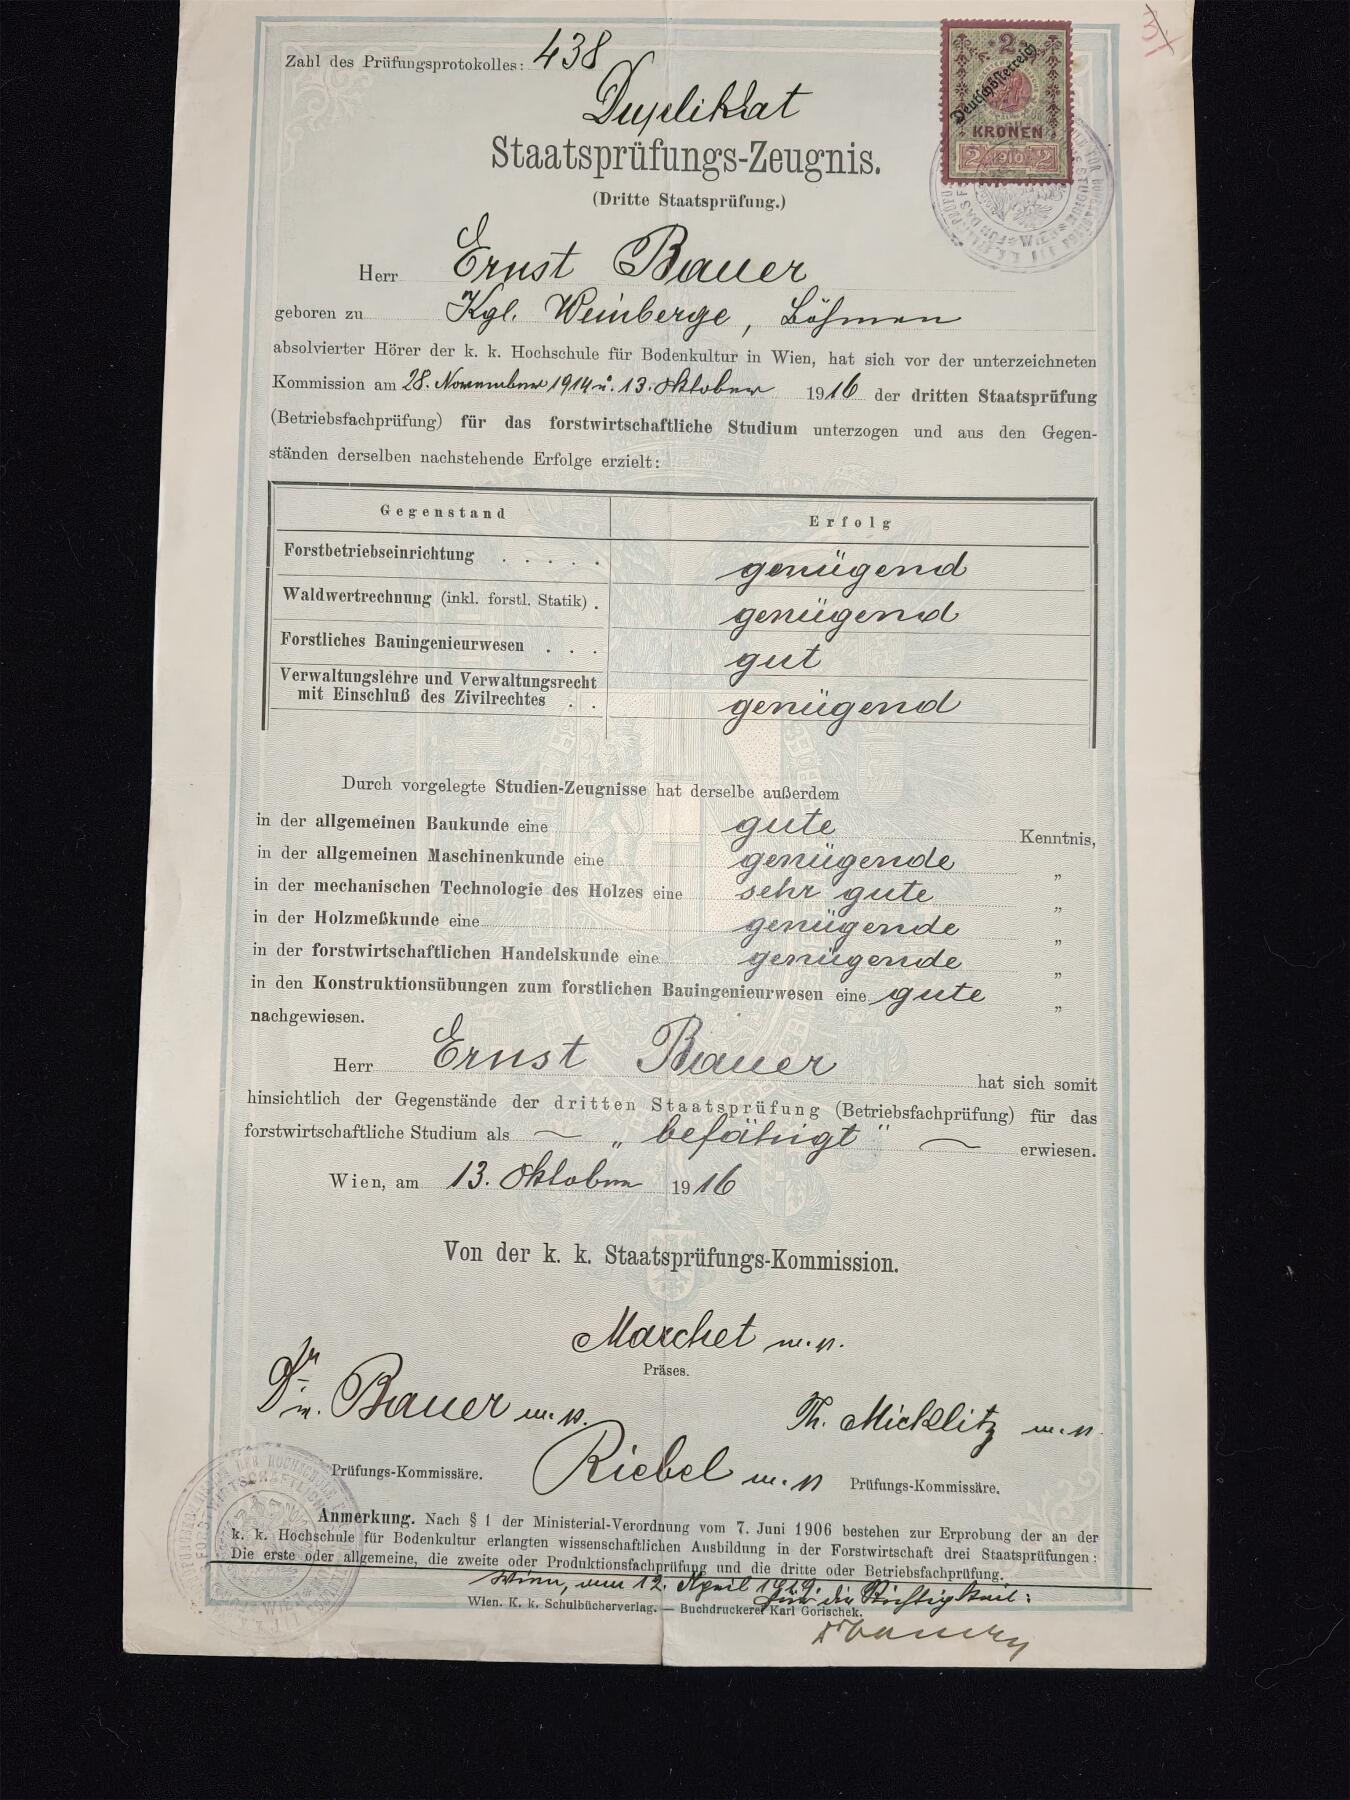 Zahl des Prüfungsprotokolles: 438
Duplikat
Staatsprüfungs-Zeugnis.
(Dritte Staatsprüfung.)
2
Deutschösterreich
KRONEN
2 1910 2
Herr Ernst Bauer
geboren zu Kgl. Weinberge, Böhmen
absolvierter Hörer der k. k. Hochschule für Bodenkultur in Wien, hat sich vor der unterzeichneten
Kommission am 28. November 1914 u. 13. Oktober 1916 der dritten Staatsprüfung
(Betriebsfachprüfung) für das forstwirtschaftliche Studium unterzogen und aus den Gegen-
ständen derselben nachstehende Erfolge erzielt:
Gegenstand Erfolg
Forstbetriebseinrichtung . . . . . genügend
Waldwertrechnung (inkl. forstl. Statik) . genügend
Forstliches Bauingenieurwesen . . . gut
Verwaltungslehre und Verwaltungsrecht
mit Einschluß des Zivilrechtes . . genügend
Durch vorgelegte Studien-Zeugnisse hat derselbe außerdem
in der allgemeinen Baukunde eine gute Kenntnis,
in der allgemeinen Maschinenkunde eine genügende „
in der mechanischen Technologie des Holzes eine sehr gute „
in der Holzmeßkunde eine genügende „
in der forstwirtschaftlichen Handelskunde eine genügende „
in den Konstruktionsübungen zum forstlichen Bauingenieurwesen eine gute „
nachgewiesen.
Herr Ernst Bauer hat sich somit
hinsichtlich der Gegenstände der dritten Staatsprüfung (Betriebsfachprüfung) für das
forstwirtschaftliche Studium als „befähigt“ erwiesen.
Wien, am 13. Oktober 1916
Von der k. k. Staatsprüfungs-Kommission.
Marchet m. p.
Präses.
Dr. Bauer m. p.
Th. Micklitz m. p.
Riebel m. p.
Prüfungs-Kommissäre. Prüfungs-Kommissäre.
Anmerkung. Nach § 1 der Ministerial-Verordnung vom 7. Juni 1906 bestehen zur Erprobung der an der
k. k. Hochschule für Bodenkultur erlangten wissenschaftlichen Ausbildung in der Forstwirtschaft drei Staatsprüfungen:
Die erste oder allgemeine, die zweite oder Produktionsfachprüfung und die dritte oder Betriebsfachprüfung.
Wien, am 12. April 1919. Für die Richtigkeit:
Wien. K. k. Schulbücherverlag. — Buchdruckerei Karl Gorischek.